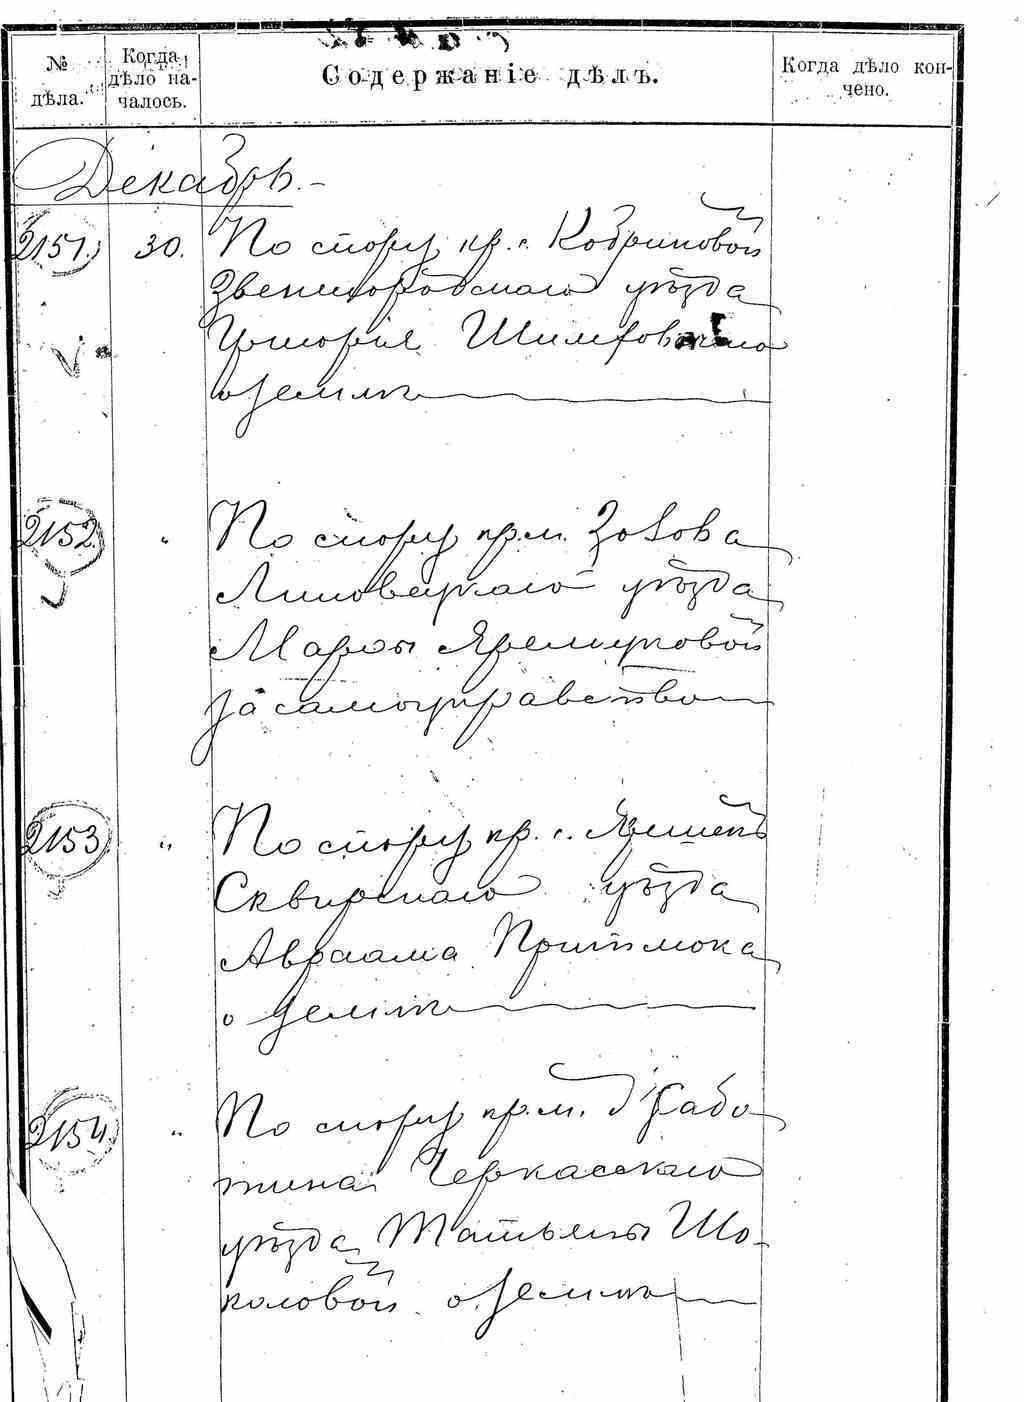 № дѣла.
Когда дѣло началось.
Содержаніе дѣлъ.
Когда дѣло кончено.
Декабрь.
2151. 30. По спору кр. с. Кобриновой
Звенигородскаго уѣзда
Григорія
о землѣ
2152. " По спору кр. м. Зозова
Липовецкаго уѣзда
Марфы Яремчуковой
за самоуправство
2153 " По спору кр. с.
Сквирскаго уѣзда
Авраама
о землѣ
2154. " По спору кр. м. Жабо
тина Черкасскаго
уѣзда Татьяны Шо-
коловой о землѣ